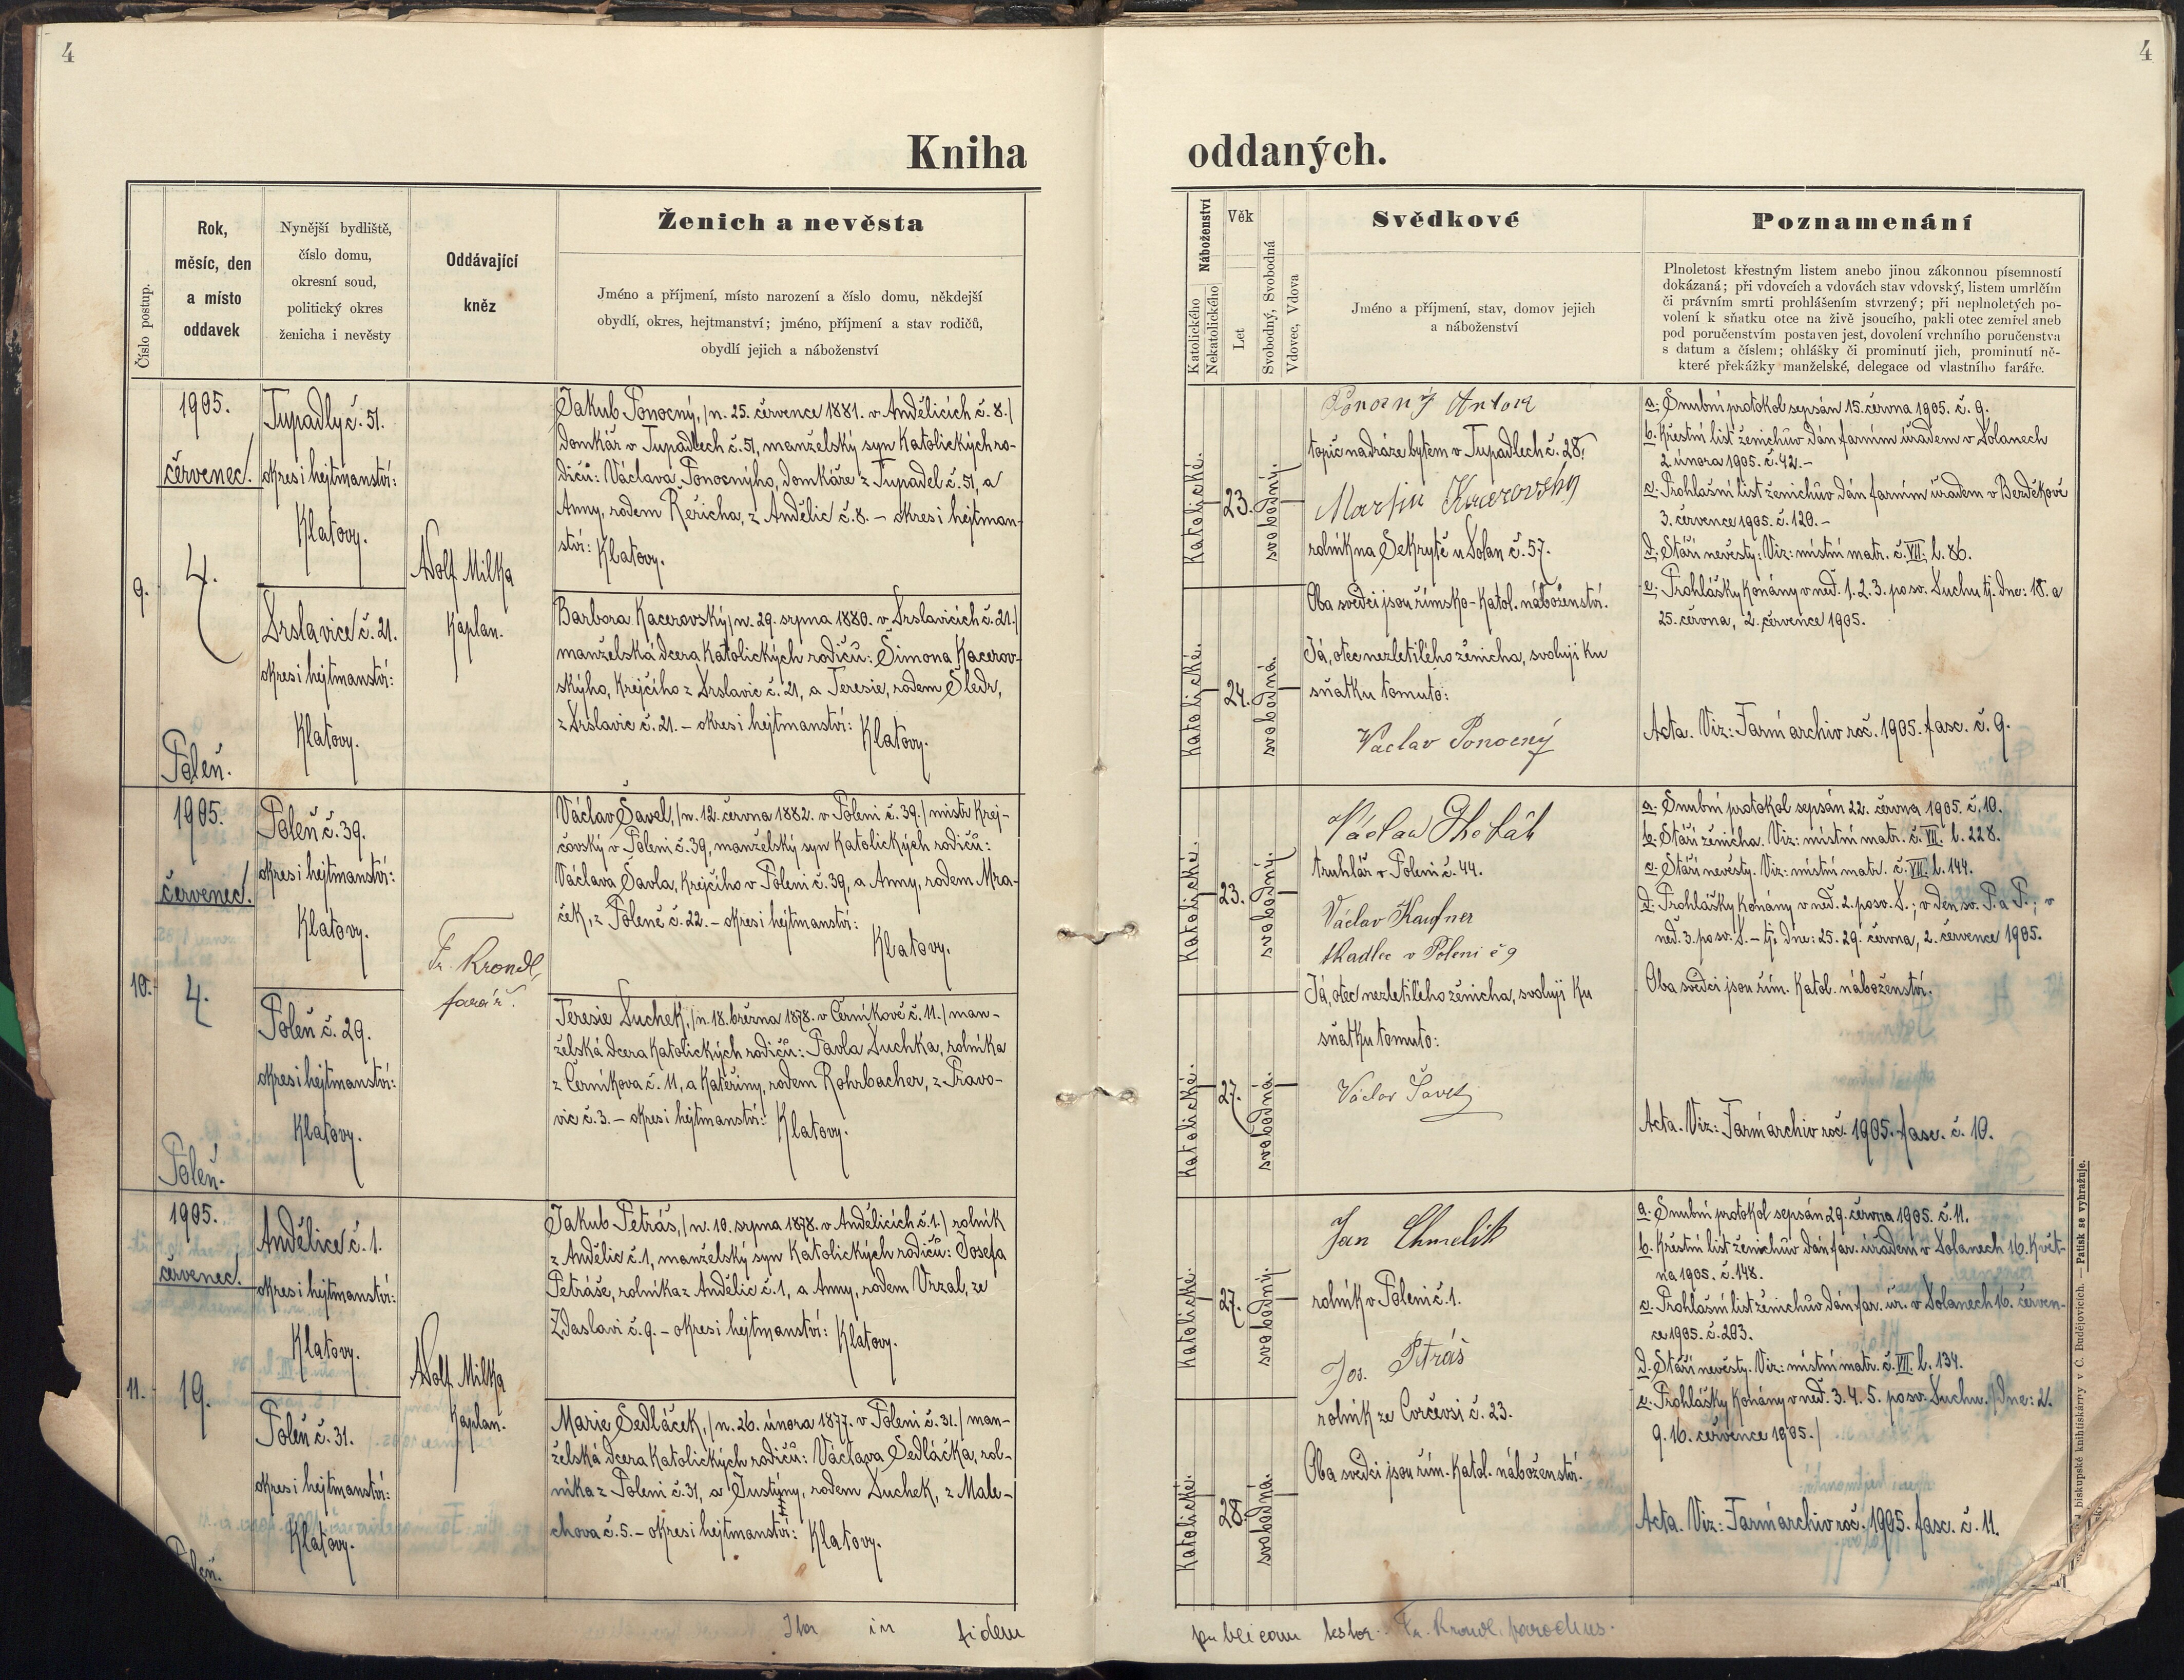 4
4
Kniha
oddaných.
Číslo postup.
Rok,
měsíc, den
a místo
oddavek
Nynější bydliště,
číslo domu,
okresní soud,
politický okres
ženicha i nevěsty
Oddávající
kněz
Ženich a nevěsta
Jméno a příjmení, místo narození a číslo domu, někdejší
obydlí, okres, hejtmanství; jméno, příjmení a stav rodičů,
obydlí jejich a náboženství
Náboženství
Katolického
Nekatolického
Věk
Let
Svobodný, Svobodná
Vdovec, Vdova
Svědkové
Jméno a příjmení, stav, domov jejich
a náboženství
Poznamenání
Plnoletost křestným listem anebo jinou zákonnou písemností
dokázaná; při vdovcích a vdovách stav vdovský, listem umrlčím
či právním smrti prohlášením stvrzený; při neplnoletých po-
volení k sňatku otce na živě jsoucího, pakli otec zemřel aneb
pod poručenstvím postaven jest, dovolení vrchního poručenstva
s datum a číslem; ohlášky či prominutí jich, prominutí ně-
které překážky manželské, delegace od vlastního faráře.
9.
1905.
červenec.
4.
Poleň.
Tupadly č. 51.
okres i hejtmanství:
Klatovy.
Drslavice č. 21.
okres i hejtmanství:
Klatovy.
Adolf Milka
kaplan.
Jakub Ponocný, /n. 25. července 1881. v Andělicích č. 8./
domkář v Tupadlech č. 51, manželský syn katolických ro-
dičů: Václava Ponocnýho, domkáře z Tupadel č. 51, a
Anny, rodem Řeřicha, z Andělic č. 8. – okres i hejtman-
ství: Klatovy.
Barbora Kacerovský /n. 29. srpna 1880. v Drslavicích č. 21./
manželská dcera katolických rodičů: Šimona Kacerov-
skýho, krejčího z Drslavic č. 21, a Teresie, rodem Šledr,
z Drslavic č. 21. – okres i hejtmanství: Klatovy.
katolické.
23.
svobodný.
katolické.
24.
svobodná.
Ponocný Antoň
topič na dráze bytem v Tupadlech č. 28.
Martin Kacerovský
rolník na Sekrytě u Dolan č. 57.
Oba svědci jsou římsko-katol. náboženství.
Já, otec nezletilého ženicha, svoluji ku
sňatku tomuto:
Vaclav Ponocný
a. Snubní protokol sepsán 15. června 1905. č. 9.
b. Křestní list ženichův dán farním úřadem v Dolanech
2. února 1905. č. 42. –
c. Prohlašní list ženichův dán farním úřadem v Bezděkově
3. července 1905. č. 120. –
d. Stáří nevěsty: Viz: místní matr. č. VII. l. 86.
e. Prohlášky konány v neď. 1. 2. 3. po sv. Duchu tj. dne: 18. a
25. června, 2. července 1905.
Acta. Viz: Farní archiv roč. 1905. fasc. č. 9.
10.
1905.
červenec.
4.
Poleň.
Poleň č. 39.
okres i hejtmanství:
Klatovy.
Poleň č. 29.
okres i hejtmanství:
Klatovy.
Fr. Krondl,
farář.
Václav Šavel, /n. 12. června 1882. v Poleni č. 39./ mistr krej-
čovský v Poleni č. 39, manželský syn katolických rodičů:
Václava Šavla, krejčího v Poleni č. 39, a Anny, rodem Mra-
ček, z Poleně č. 22. – okres i hejtmanství:
Klatovy.
Teresie Duchek, /n. 18. března 1878. v Černíkově č. 11./ man-
želská dcera katolických rodičů: Pavla Duchka, rolníka
z Černíkova č. 11, a Kateřiny, rodem Rohrbacher, z Pravo-
vic č. 3. – okres i hejtmanství: Klatovy.
katolické.
23.
svobodný.
katolické.
27.
svobodná.
Václav
truhlář v Poleni č. 44.
Václav Kaufner
tkadlec v Poleni č 9
Já, otec nezletilého ženicha, svoluji ku
sňatku tomuto:
Václav Šavel
a. Snubní protokol sepsán 22. června 1905. č. 10.
b. Stáří ženicha. Viz: místní matr. č. VII. l. 228.
c. Stáří nevěsty. Viz: místní matr. č. VII. l. 144.
d. Prohlášky konány v neď. 2. po sv. D.; v den sv. P. a P.; v
neď. 3. po sv. D. – tj. dne: 25. 29. června, 2. července 1905.
Oba svědci jsou řím. katol. náboženství.
Acta. Viz: Farní archiv roč. 1905. fasc. č. 10.
11.
1905.
červenec.
19.
Andělice č. 1.
okres i hejtmanství:
Klatovy.
Poleň č. 31.
okres i hejtmanství:
Klatovy.
Adolf Milka
kaplan.
Jakub Petráš, /n. 10. srpna 1878. v Andělicích č. 1./ rolník
z Andělic č. 1, manželský syn katolických rodičů: Josefa
Petráše, rolníka z Andělic č. 1, a Anny, rodem Vrzal, ze
Zdaslavi č. 9. – okres i hejtmanství: Klatovy.
Marie Sedláček, /n. 26. února 1877. v Poleni č. 31./ man-
želská dcera katolických rodičů: Václava Sedláčka, rol-
níka z Poleni č. 31, a Justýny, rodem Duchek, z Male-
chova č. 5. – okres i hejtmanství: Klatovy.
katolické.
27.
svobodný.
katolické.
28.
svobodná.
Jan Chmelík
rolník v Poleni č. 1.
Jos. Petráš
rolník ze Cvrčevsi č. 23.
Oba svědci jsou řím. katol. náboženství.
a. Snubní protokol sepsán 29. června 1905. č. 11.
b. Křestní list ženichův dán far. úřadem v Dolanech 16. květ-
na 1905. č. 148.
c. Prohlašní list ženichův dán far. úř. v Dolanech 16. červen-
ce 1905. č. 203.
d. Stáří nevěsty. Viz: místní matr. č. VII. l. 134.
e. Prohlášky konány v neď. 3. 4. 5. po sv. Duchu. /Dne: 2.
9. 16. července 1905./
Acta. Viz: Farní archiv roč. 1905. fasc. č. 11.
biskupské knihtiskárny v Č. Budějovicích. — Patisk se vyhražuje.
Ita in fidem
publicam testor. Fr. Krondl, parochus.